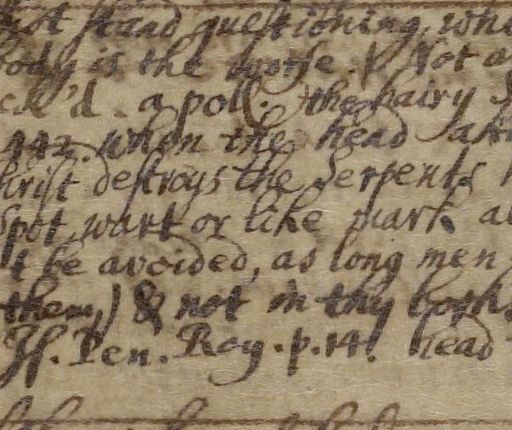 not stand questioning, whe
body is the worse. Not a
ck'd. a poll. the hairy s
442. when the head aft
hrist destroys the Serpents h
Spot, wart or like mark a
t be avoided, as long men
them,) & not in thy
Is. Pen. Roy. p. 14. head